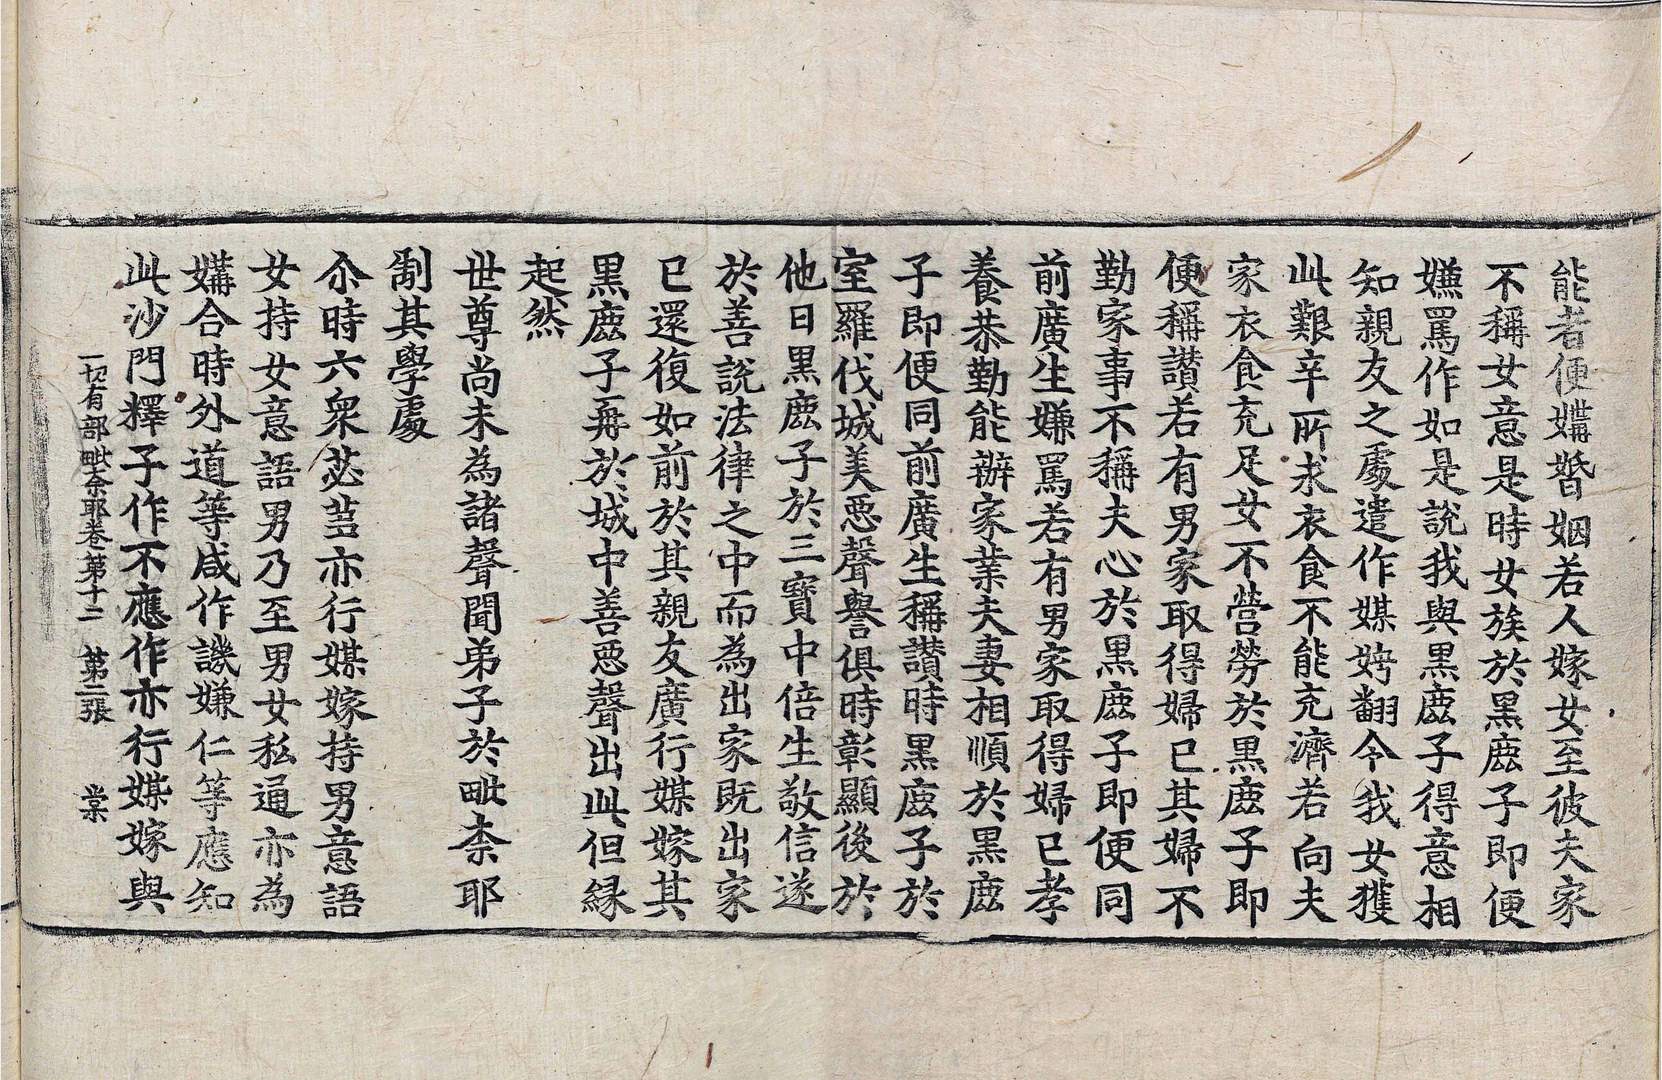 能者便媾婚姻若人嫁女至彼夫家
不稱女意是時女族於黒鹿子即便
嫌罵作如是說我與黒鹿子得意相
知親友之處遣作媒娉翻令我女獲
此艱辛所求衣食不能充濟若向夫
家衣食充足女不營勞於黒鹿子即
便稱讃若有男家取得婦已其婦不
勤家事不稱夫心於黒鹿子即便同
前廣生嫌罵若有男家取得婦已孝
養恭勤能辦家業夫妻相順於黒鹿
子即便同前廣生稱讃時黒鹿子於
室羅伐城美惡聲譽俱時彰顯後於
他日黒鹿子於三寳中倍生敬信遂
於善說法律之中而為出家既出家
已還復如前於其親友廣行媒嫁其
黒鹿子再於城中善惡聲出此但縁
起然
世尊尚未為諸聲聞弟子於毗奈耶
制其學處
尒時六衆苾芻亦行媒嫁持男意語
女持女意語男乃至男女私通亦為
媾合時外道等咸作譏嫌仁等應知
此沙門釋子作不應作亦行媒嫁與
一切有部毗奈耶卷第十二 第二張 棠